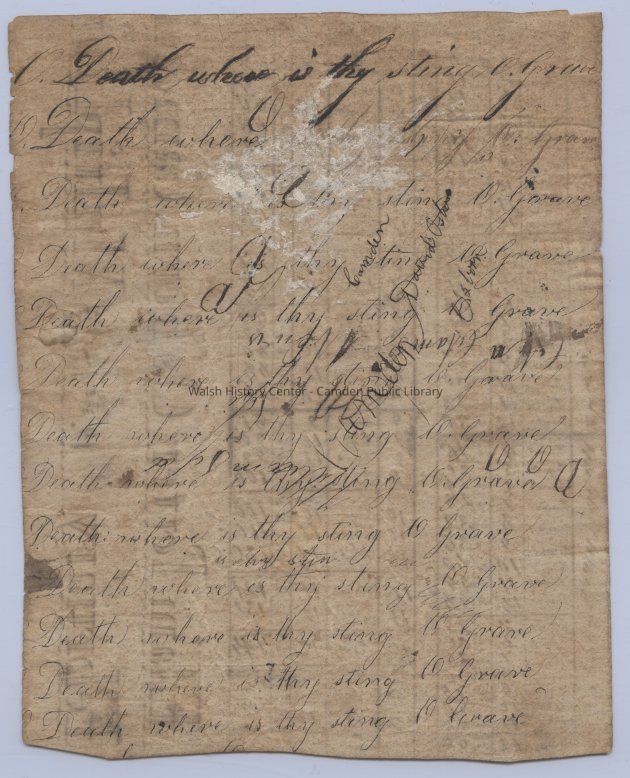 O. Death where is thy sting O. Grave
O. Death where is thy sting O. Grave
Death where is thy sting O. Grave
Death where is thy sting O Grave
Death where is thy sting O Grave
Death where is thy sting O Grave
Death where is thy sting O Grave
Death where is thy sting O. Grave
Death where is thy sting O Grave
is thy stin
Death where is thy sting O Grave
Death where is thy sting O Grave
Death where is thy sting O Grave
Death where is thy sting O Grave
Camden
David
Walsh History Center - Camden Public Library